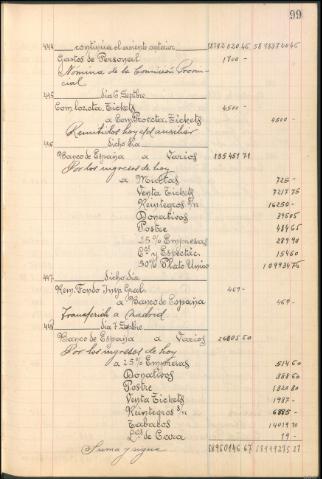 99
444 continúa el asiento anterior 18782020 45 18783720 45
Gastos de Personal 1700 -
Nómina de la Comisión Provin-
cial
445 día 6 Septbre
Com. Tickets 4500 -
a Com. Tickets 4500 -
Remitidos hoy al auxiliar
446 dicho día
Banco de España a Varios 185451 71
Por los ingresos de hoy
a Multas 725 -
Venta Tickets
Reintegros S/n 16250 -
Donativos 39505
Postre 48465
25% Empresas 28790
Cºs y Espectác. 15460
50% Plato Unico
447 dicho día
Rem. Fondo Imp. Gral 469 -
a Banco de España 469 -
transferido a Madrid
448 día 7 Septbre
Banco de España a Varios 26805 50
Por los ingresos de hoy
a 25% Empresas 51460
Donativos
Postre
Venta Tickets 1987 -
Reintegros S/n 6885 -
Tabacos 14019 70
Lºs de Caza 19 -
Suma y sigue